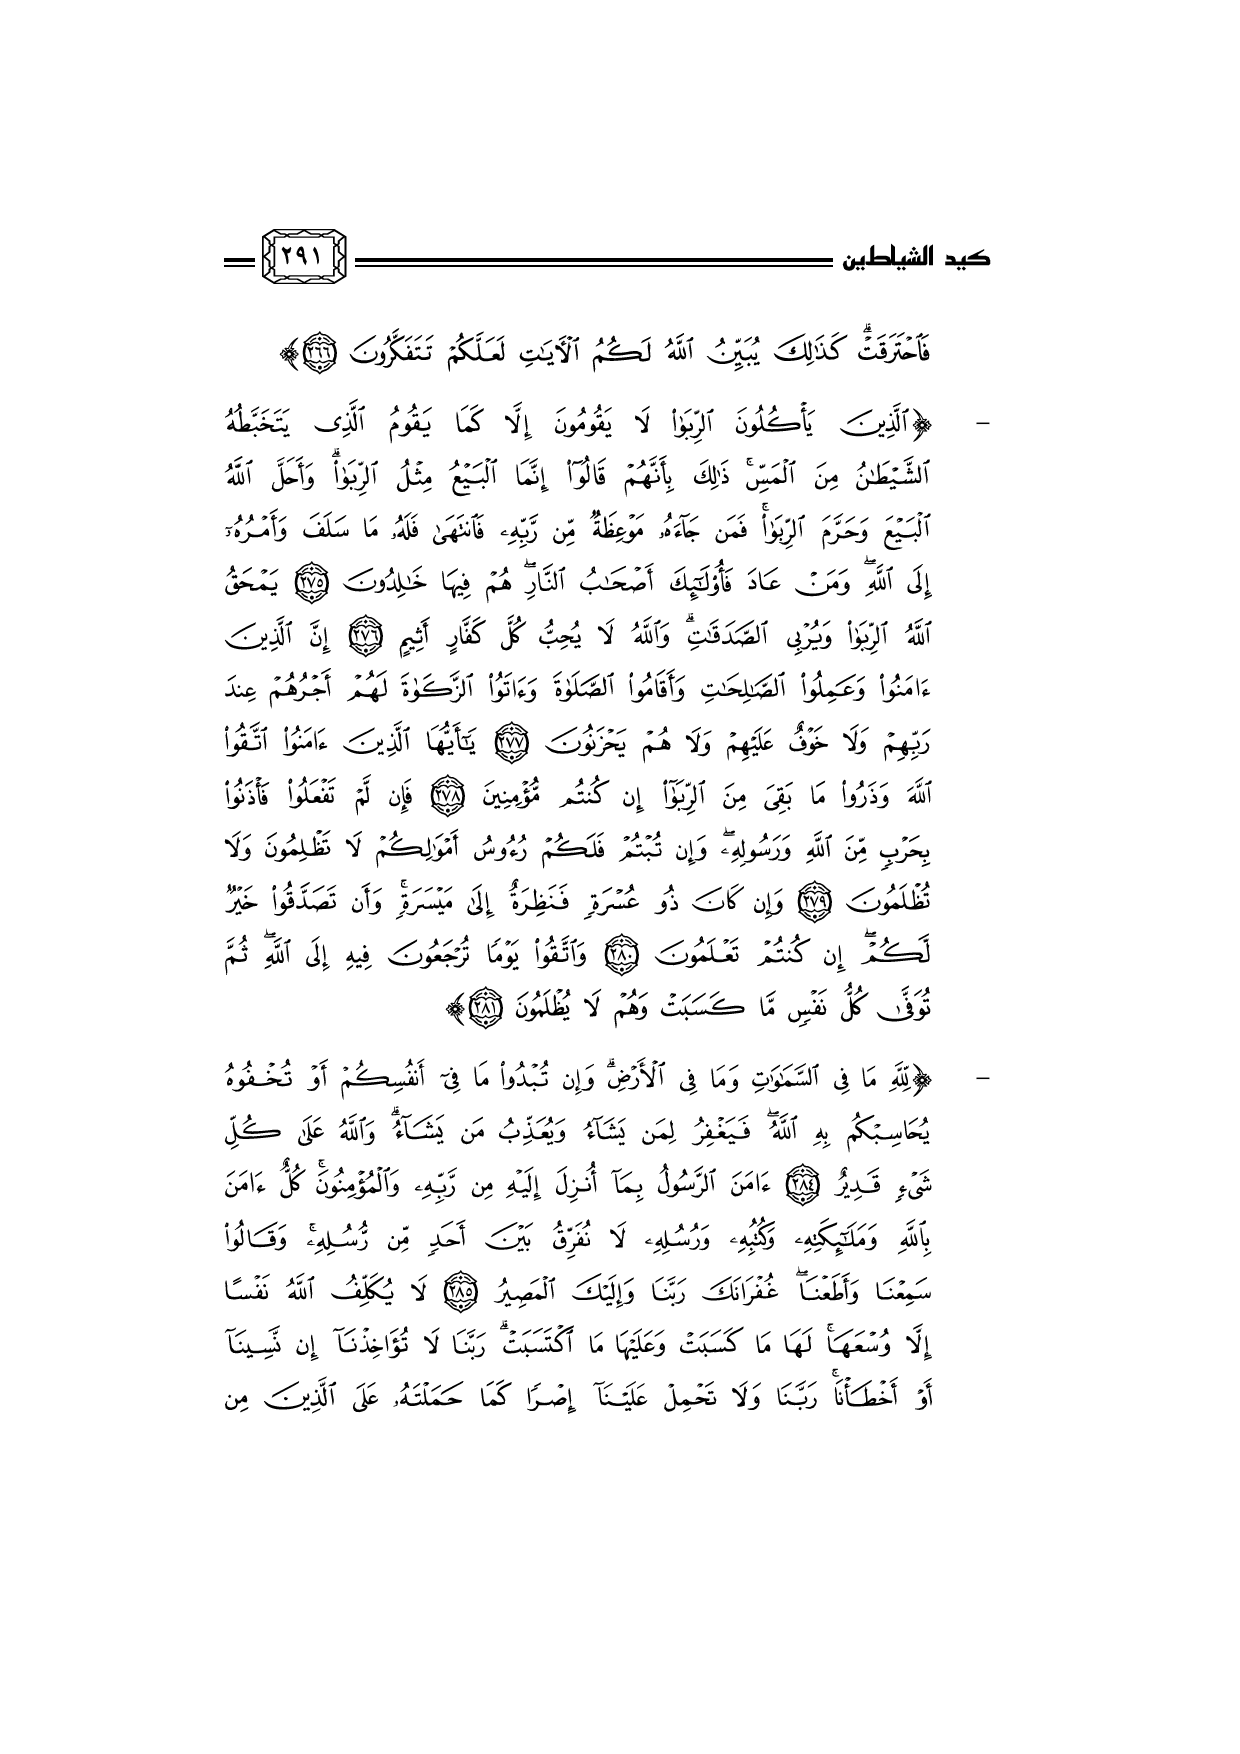 كيد الشياطين ٢٩١
فَٱحْتَرَقَتْ ۗ كَذَٰلِكَ يُبَيِّنُ ٱللَّهُ لَكُمُ ٱلْـَٔايَـٰتِ لَعَلَّكُمْ تَتَفَكَّرُونَ ٢٦٦ ﴾
- ﴿ ٱلَّذِينَ يَأْكُلُونَ ٱلرِّبَوٰا۟ لَا يَقُومُونَ إِلَّا كَمَا يَقُومُ ٱلَّذِى يَتَخَبَّطُهُ
ٱلشَّيْطَـٰنُ مِنَ ٱلْمَسِّ ۚ ذَٰلِكَ بِأَنَّهُمْ قَالُوٓا۟ إِنَّمَا ٱلْبَيْعُ مِثْلُ ٱلرِّبَوٰا۟ ۗ وَأَحَلَّ ٱللَّهُ
ٱلْبَيْعَ وَحَرَّمَ ٱلرِّبَوٰا۟ ۚ فَمَن جَآءَهُۥ مَوْعِظَةٌ مِّن رَّبِّهِۦ فَٱنتَهَىٰ فَلَهُۥ مَا سَلَفَ وَأَمْرُهُۥٓ
إِلَى ٱللَّهِ ۖ وَمَنْ عَادَ فَأُو۟لَـٰٓئِكَ أَصْحَـٰبُ ٱلنَّارِ ۖ هُمْ فِيهَا خَـٰلِدُونَ ٢٧٥ يَمْحَقُ
ٱللَّهُ ٱلرِّبَوٰا۟ وَيُرْبِى ٱلصَّدَقَـٰتِ ۗ وَٱللَّهُ لَا يُحِبُّ كُلَّ كَفَّارٍ أَثِيمٍ ٢٧٦ إِنَّ ٱلَّذِينَ
ءَامَنُوا۟ وَعَمِلُوا۟ ٱلصَّـٰلِحَـٰتِ وَأَقَامُوا۟ ٱلصَّلَوٰةَ وَءَاتَوُا۟ ٱلزَّكَوٰةَ لَهُمْ أَجْرُهُمْ عِندَ
رَبِّهِمْ وَلَا خَوْفٌ عَلَيْهِمْ وَلَا هُمْ يَحْزَنُونَ ٢٧٧ يَـٰٓأَيُّهَا ٱلَّذِينَ ءَامَنُوا۟ ٱتَّقُوا۟
ٱللَّهَ وَذَرُوا۟ مَا بَقِىَ مِنَ ٱلرِّبَوٰٓا۟ إِن كُنتُم مُّؤْمِنِينَ ٢٧٨ فَإِن لَّمْ تَفْعَلُوا۟ فَأْذَنُوا۟
بِحَرْبٍ مِّنَ ٱللَّهِ وَرَسُولِهِۦ ۖ وَإِن تُبْتُمْ فَلَكُمْ رُءُوسُ أَمْوَٰلِكُمْ لَا تَظْلِمُونَ وَلَا
تُظْلَمُونَ ٢٧٩ وَإِن كَانَ ذُو عُسْرَةٍ فَنَظِرَةٌ إِلَىٰ مَيْسَرَةٍ ۚ وَأَن تَصَدَّقُوا۟ خَيْرٌ
لَّكُمْ ۖ إِن كُنتُمْ تَعْلَمُونَ ٢٨٠ وَٱتَّقُوا۟ يَوْمًا تُرْجَعُونَ فِيهِ إِلَى ٱللَّهِ ۖ ثُمَّ
تُوَفَّىٰ كُلُّ نَفْسٍ مَّا كَسَبَتْ وَهُمْ لَا يُظْلَمُونَ ٢٨١ ﴾
- ﴿ لِلَّهِ مَا فِى ٱلسَّمَـٰوَٰتِ وَمَا فِى ٱلْأَرْضِ ۗ وَإِن تُبْدُوا۟ مَا فِىٓ أَنفُسِكُمْ أَوْ تُخْفُوهُ
يُحَاسِبْكُم بِهِ ٱللَّهُ ۖ فَيَغْفِرُ لِمَن يَشَآءُ وَيُعَذِّبُ مَن يَشَآءُ ۗ وَٱللَّهُ عَلَىٰ كُلِّ
شَىْءٍ قَدِيرٌ ٢٨٤ ءَامَنَ ٱلرَّسُولُ بِمَآ أُنزِلَ إِلَيْهِ مِن رَّبِّهِۦ وَٱلْمُؤْمِنُونَ ۚ كُلٌّ ءَامَنَ
بِٱللَّهِ وَمَلَـٰٓئِكَتِهِۦ وَكُتُبِهِۦ وَرُسُلِهِۦ لَا نُفَرِّقُ بَيْنَ أَحَدٍ مِّن رُّسُلِهِۦ ۚ وَقَالُوا۟
سَمِعْنَا وَأَطَعْنَا ۖ غُفْرَانَكَ رَبَّنَا وَإِلَيْكَ ٱلْمَصِيرُ ٢٨٥ لَا يُكَلِّفُ ٱللَّهُ نَفْسًا
إِلَّا وُسْعَهَا ۚ لَهَا مَا كَسَبَتْ وَعَلَيْهَا مَا ٱكْتَسَبَتْ ۗ رَبَّنَا لَا تُؤَاخِذْنَآ إِن نَّسِينَآ
أَوْ أَخْطَأْنَا ۚ رَبَّنَا وَلَا تَحْمِلْ عَلَيْنَآ إِصْرًا كَمَا حَمَلْتَهُۥ عَلَى ٱلَّذِينَ مِن